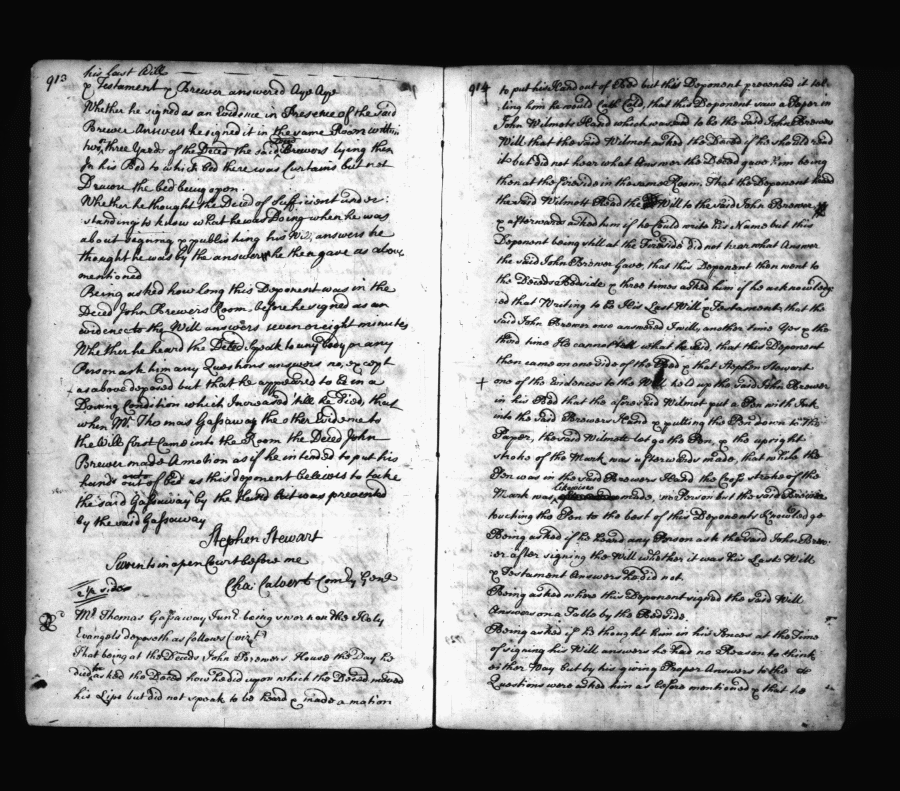 913
his Last Will
& Testament & Brewer answered Aye Aye
Whether he signed as an Evidence in Presence of the said
Brewer Answers he signed it in the same Room within
two or three Yards of the Deced the said Brewers lying then
In his Bed to which Bed there was Curtains but not
Drawn the bed being open.
Whether he thought the Deced of sufficient under:
standing to know what he was Doing when he was
about signing & publishing his Will, answers he
thought he was by the answers he then gave as above
mentioned
Being asked how long this Deponent was in the
Deced John Brewers Room before he signed as an
evidence to the Will answers seven or eight minutes
Whether he heard the Deced speak to any body or any
Person ask him any Questions answers no, except
as above deposed but that he appeared to be in a
Dozing Condition which Increased 'till he Died, that
when Mr. Thomas Gassaway the other Evidence to
the Will first Came into the Room the Deced John
Brewer made a motion as if he intended to put his
hands out of bed as this deponent believes to take
the said Gassaway by the Hand but was prevented
by the said Gassaway
Stephen Stewart
Sworn to in open Court before me
Cha: Calvert Comry Genl
2d side
Mr. Thomas Gassaway Junr. being sworn on the Holy
Evangels deposeth as follows (vizt)
That being at the Deceds John Brewers House the Day he
died asked the Deced how he did upon which the Deced moved
his Lips but did not speak to be heard & made a motion
914
to put his Hand out of Bed but this Deponent prevented it tel-
ling him he would Catch Cold, that this Deponent saw a Paper in
John Wilmots Hand which was said to be the said John Brewers
Will that the said Wilmot asked the Deced if he should read
it but did not hear what Answer the Deced gave him being
then at the fireside in the same Room. That the Deponent heard
the said Wilmott Read the Will to the said John Brewer
& afterwards asked him if he Could write his Name but this
Deponent being still at the Fireside did not hear what Answer
the said John Brewer Gave, that this Deponent then went to
the Deceds Bedside & three times asked him if he acknowledg
:ed that Writing to be His Last Will & Testament, that the
said John Brewer once answered I will, another time Yes & the
third time He cannot tell what he said, that this Deponent
then came on one side of the Bed & that Stephen Stewart
one of the Evidences to the Will held up the said John Brewer
in his Bed that the aforesaid Wilmot put a Pen with Ink
into the said Brewers Hand & putting the Pen down to the
Paper, the said Wilmott let go the Pen, & the upright
stroke of the Mark was afterwards made, that while the
Pen was in the said Brewers Hand the Cross stroke of the
Mark was likewise made, no Person but the said Brewer
touching the Pen to the best of this Deponents Knowledge
Being asked if he heard any Person ask the said John Brew
:er after signing the Will whether it was his Last Will
& Testament Answers he did not.
Being asked where this Deponent signed the said Will
Answers on a Table by the Bed side.
Being asked if he thought him in his Sences at the Time
of signing his Will answers he had no Reason to think
other Way but by his giving Proper Answers to the
Questions were asked him as before mentioned & that he